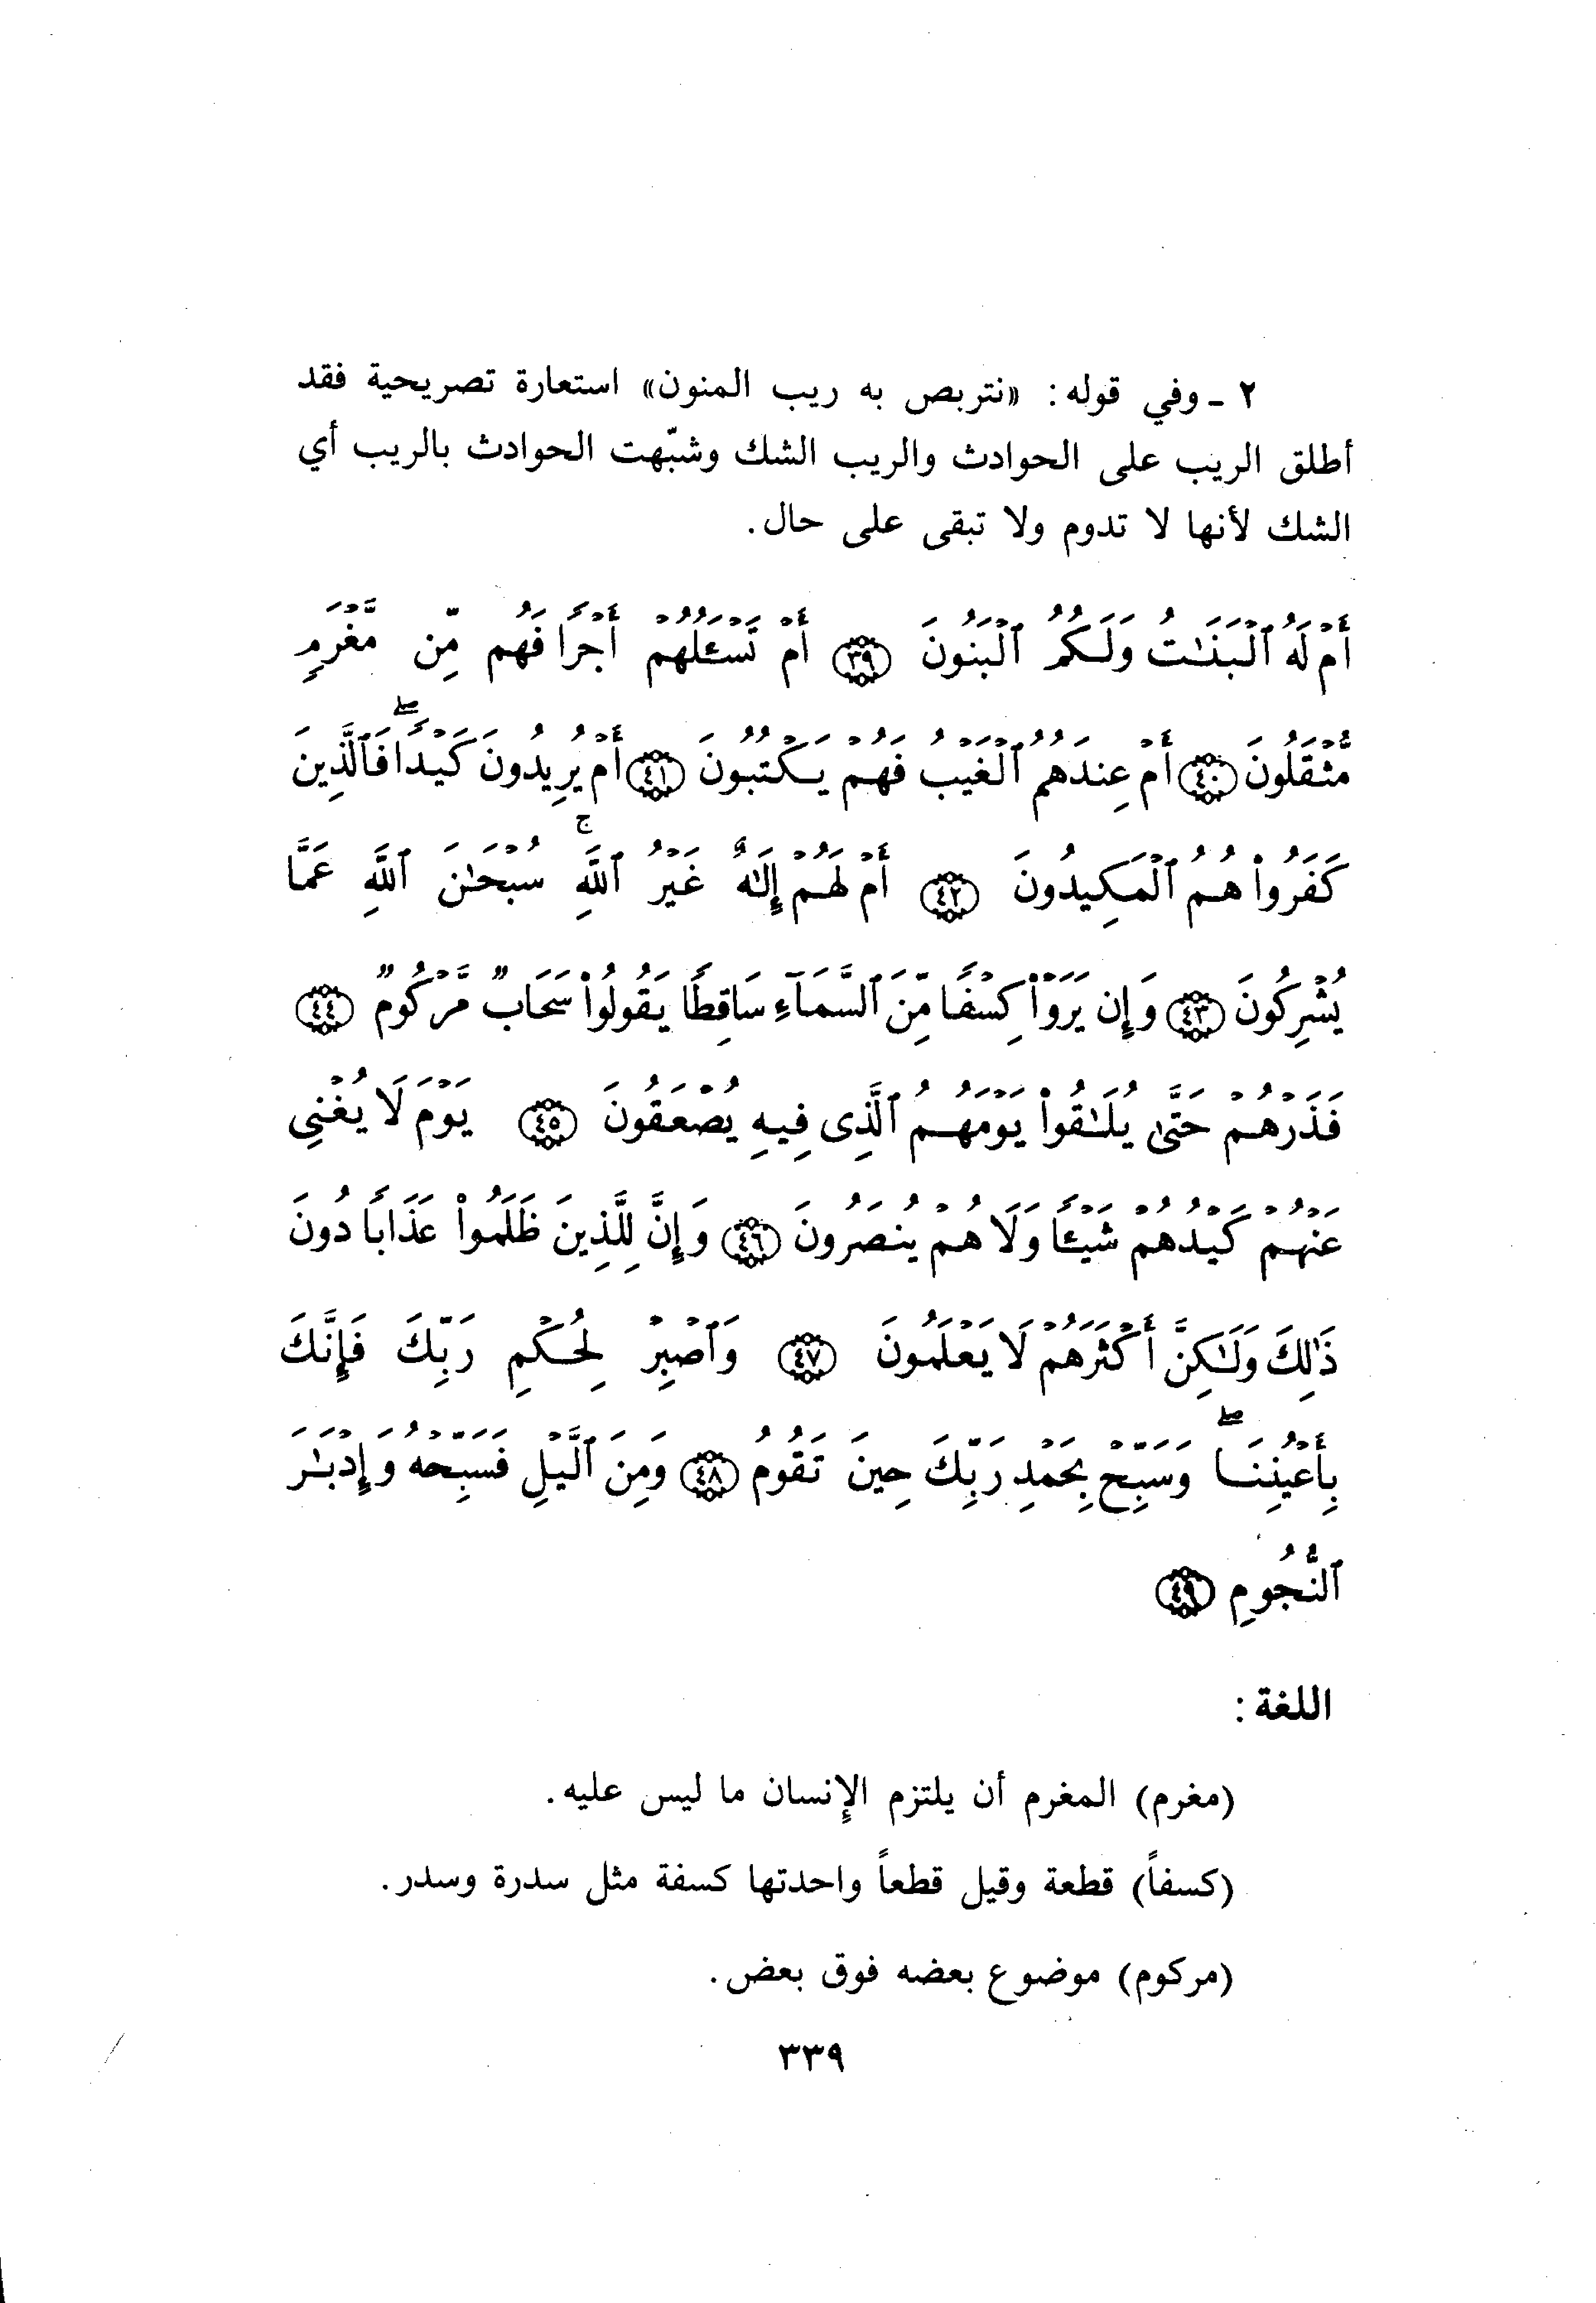 ٢ - وفي قوله : «نتربص به ريب المنون» استعارة تصريحية فقد
أطلق الريب على الحوادث والريب الشك وشبّهت الحوادث بالريب أي
الشك لأنها لا تدوم ولا تبقى على حال .
أَمْ لَهُ ٱلْبَنَـٰتُ وَلَكُمُ ٱلْبَنُونَ ﴿٣٩﴾ أَمْ تَسْـَٔلُهُمْ أَجْرًا فَهُم مِّن مَّغْرَمٍ
مُّثْقَلُونَ ﴿٤٠﴾ أَمْ عِندَهُمُ ٱلْغَيْبُ فَهُمْ يَكْتُبُونَ ﴿٤١﴾ أَمْ يُرِيدُونَ كَيْدًا ۖ فَٱلَّذِينَ
كَفَرُوا۟ هُمُ ٱلْمَكِيدُونَ ﴿٤٢﴾ أَمْ لَهُمْ إِلَـٰهٌ غَيْرُ ٱللَّهِ ۚ سُبْحَـٰنَ ٱللَّهِ عَمَّا
يُشْرِكُونَ ﴿٤٣﴾ وَإِن يَرَوْا۟ كِسْفًا مِّنَ ٱلسَّمَآءِ سَاقِطًا يَقُولُوا۟ سَحَابٌ مَّرْكُومٌ ﴿٤٤﴾
فَذَرْهُمْ حَتَّىٰ يُلَـٰقُوا۟ يَوْمَهُمُ ٱلَّذِى فِيهِ يُصْعَقُونَ ﴿٤٥﴾ يَوْمَ لَا يُغْنِى
عَنْهُمْ كَيْدُهُمْ شَيْـًٔا وَلَا هُمْ يُنصَرُونَ ﴿٤٦﴾ وَإِنَّ لِلَّذِينَ ظَلَمُوا۟ عَذَابًا دُونَ
ذَٰلِكَ وَلَـٰكِنَّ أَكْثَرَهُمْ لَا يَعْلَمُونَ ﴿٤٧﴾ وَٱصْبِرْ لِحُكْمِ رَبِّكَ فَإِنَّكَ
بِأَعْيُنِنَا ۖ وَسَبِّحْ بِحَمْدِ رَبِّكَ حِينَ تَقُومُ ﴿٤٨﴾ وَمِنَ ٱلَّيْلِ فَسَبِّحْهُ وَإِدْبَـٰرَ
ٱلنُّجُومِ ﴿٤٩﴾
اللغة :
(مغرم) المغرم أن يلتزم الإنسان ما ليس عليه .
(كسفاً) قطعة وقيل قطعاً واحدتها كسفة مثل سدرة وسدر .
(مركوم) موضوع بعضه فوق بعض .
٣٣٩